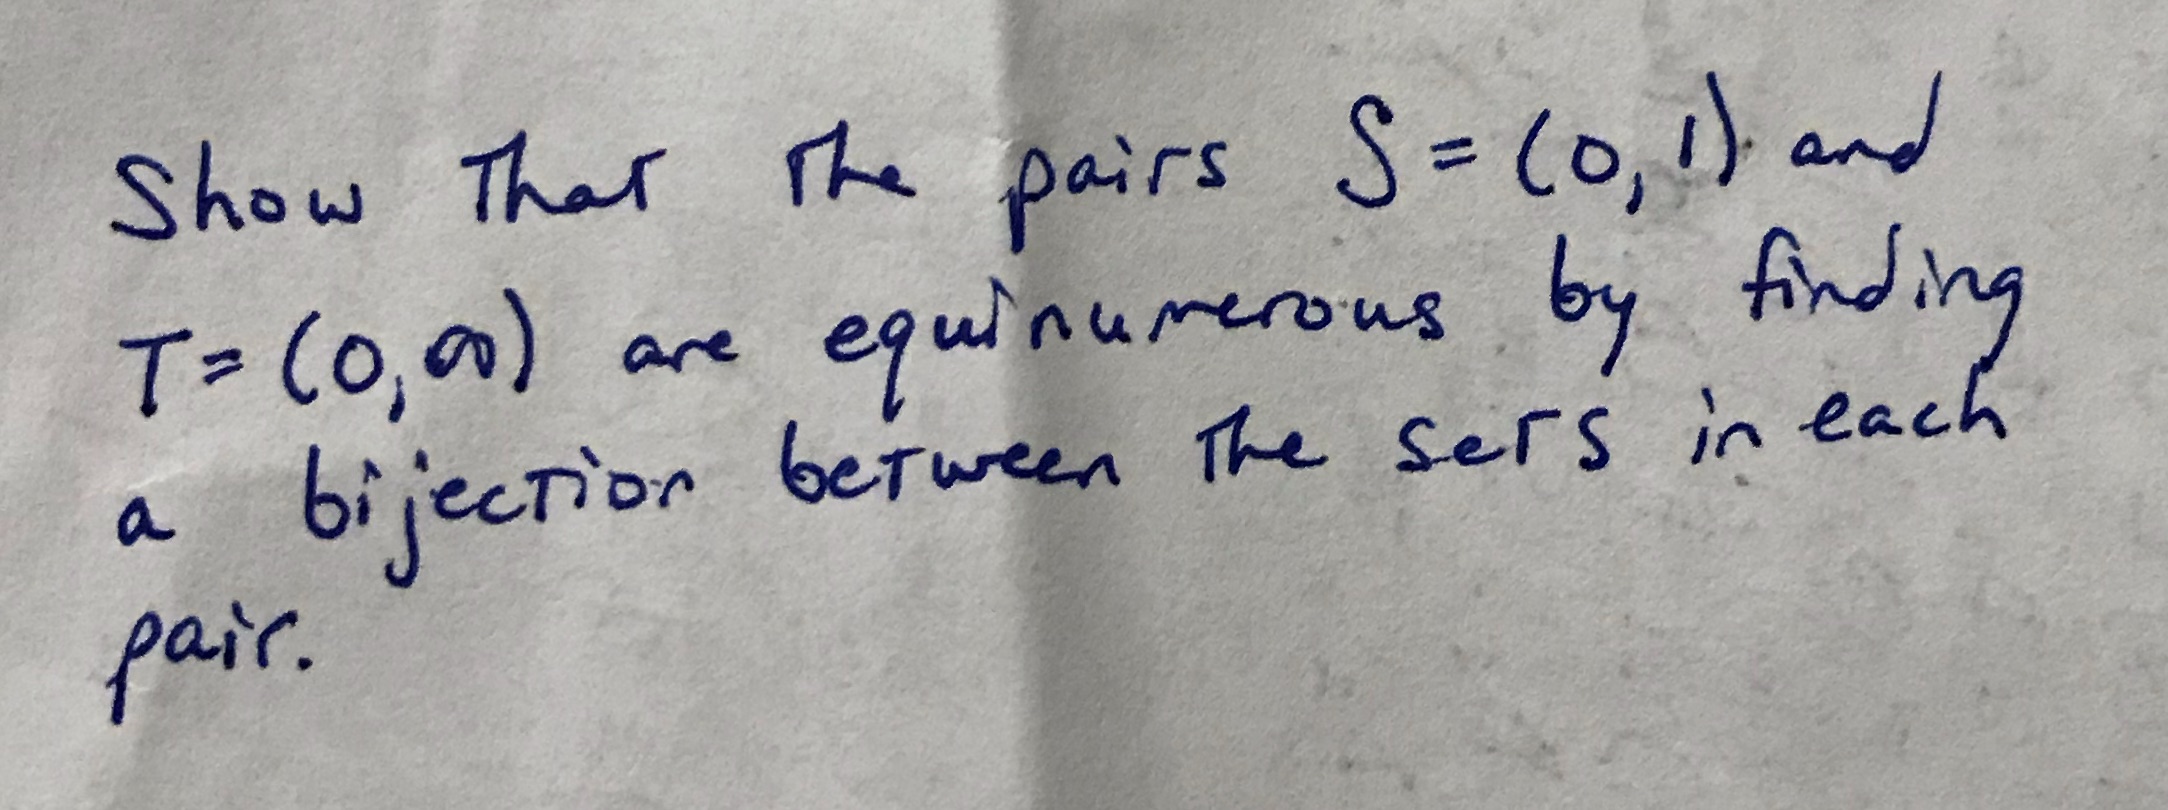 Show that the pairs S = (0, 1) and
T = (0, ∞) are equinumerous by finding
a bijection between the sets in each
pair.